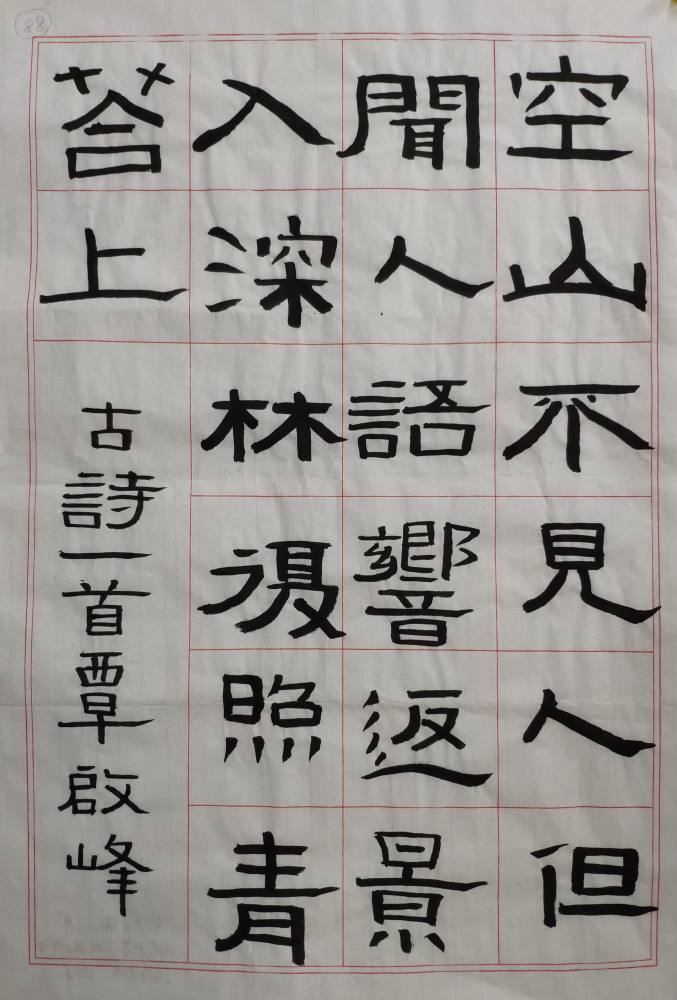 空山不見人但
聞人語響返景
入深林復照青
荅上
古詩一首覃啟峰
88